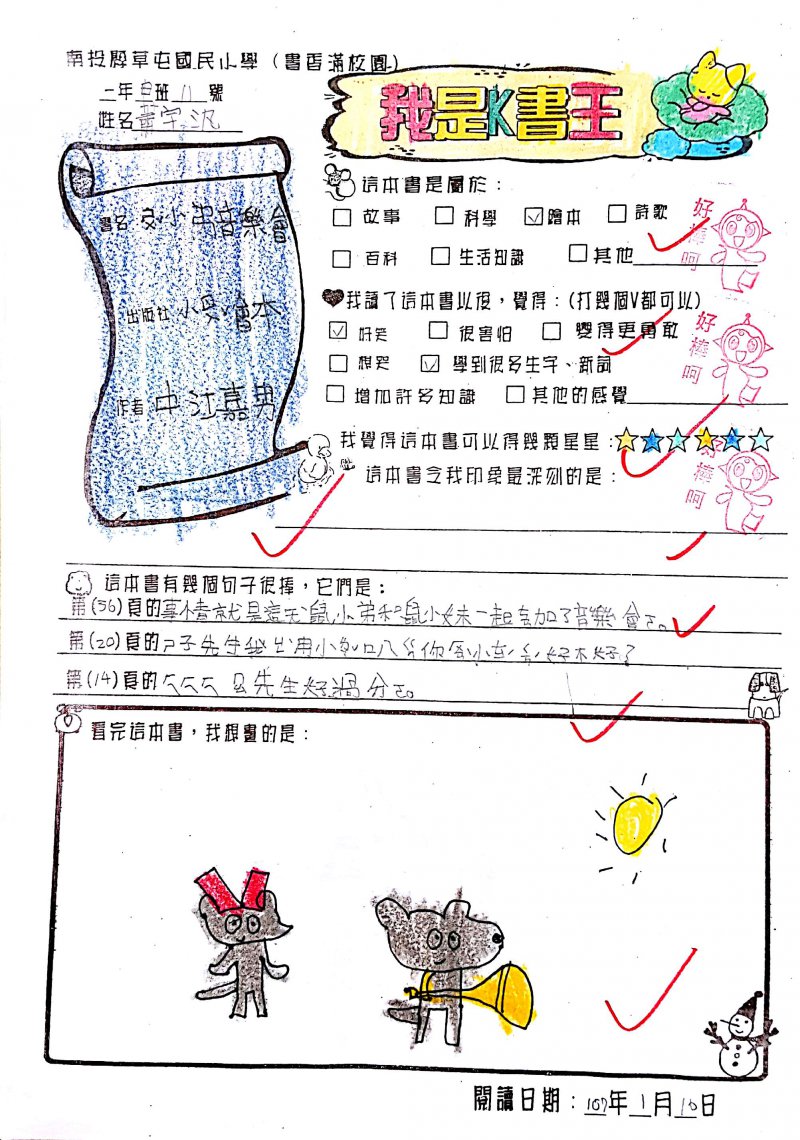 南投縣草屯國民小學（書香滿校園）
二年 班 11 號
姓名 黃宇汎
我是K書王
書名 小弟音樂會
出版社 小 繪本
作者 中江嘉男
這本書是屬於：
□故事 □科學 ☑繪本 □詩歌
□百科 □生活知識 □其他
好棒呵
我讀了這本書以後，覺得：(打幾個V都可以)
☑好笑 □很害怕 □變得更勇敢
□想哭 ☑學到很多生字、新詞
□增加許多知識 □其他的感覺
好棒呵
我覺得這本書可以得幾顆星星：
這本書令我印象最深刻的是：
好棒呵
這本書有幾個句子很棒，它們是：
第(56)頁的事情就是這天鼠小弟和鼠小妹一起去加了音樂會
第(20)頁的 子先生 出用小 你 小 好不好？
第(14)頁的 先生好過分
看完這本書，我想畫的是：
閱讀日期：107年1月10日